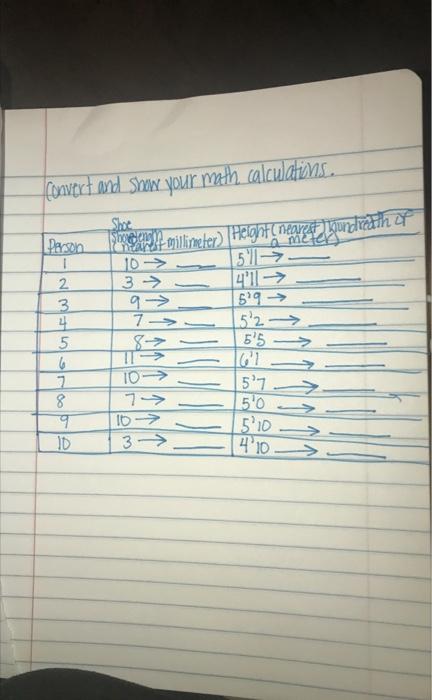 Convert and show your math calculations.
Person Shoe length (nearest millimeter) Height (nearest hundreath of a meter)
1 10 → __ 5'11 → __
2 3 → __ 4'11 → __
3 9 → __ 5'9 → __
4 7 → __ 5'2 → __
5 8 → __ 5'5 → __
6 11 → __ 6'1 → __
7 10 → __ 5'7 → __
8 7 → __ 5'0 → __
9 10 → __ 5'10 → __
10 3 → __ 4'10 → __